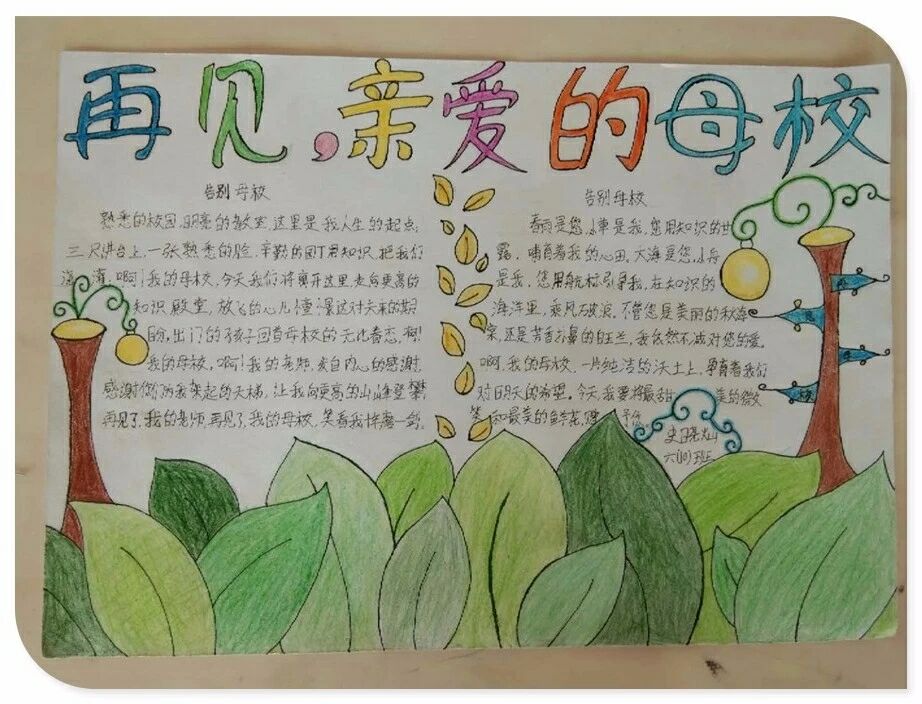 再见，亲爱的母校
告别母校
熟悉的校园，明亮的教室，这里是我人生的起点；
三尺讲台上，一张熟悉的脸，辛勤的园丁用知识，把我们
浇灌，啊！我的母校，今天我们将离开这里走向更高的
知识殿堂，放飞的心儿憧憬这对未来的期
盼，出门的孩子回首母校的无比眷恋，啊！
我的母校，啊！我的老师，发自内心的感谢，
感谢你们为我架起的天梯，让我向更高的山峰登攀
再见了，我的老师，再见了，我的母校，笑看我挥舞一剑。
告别母校
春雨是您，小草是我，您用知识的甘
露，哺育着我的心田，大海是您，小舟
是我，您用航标引导我，在知识的
海洋里，乘风破浪，不管您是美丽的秋海
棠，还是芳香的白玉兰，我依然不减对您的爱。
啊，我的母校，一片纯洁的沃土上，孕育着我们
对明天的希望。今天，我要将最甜美的微
笑和最美的鲜花，
六(10)班